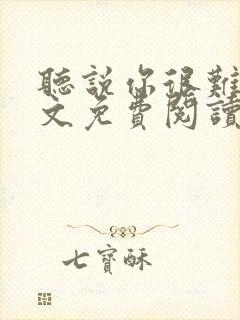 聽說你很難
文免費閱讀
七寶酥